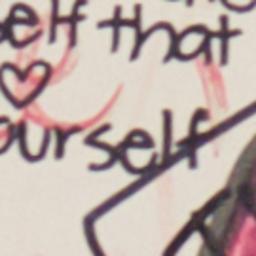 self that
♡
ourself